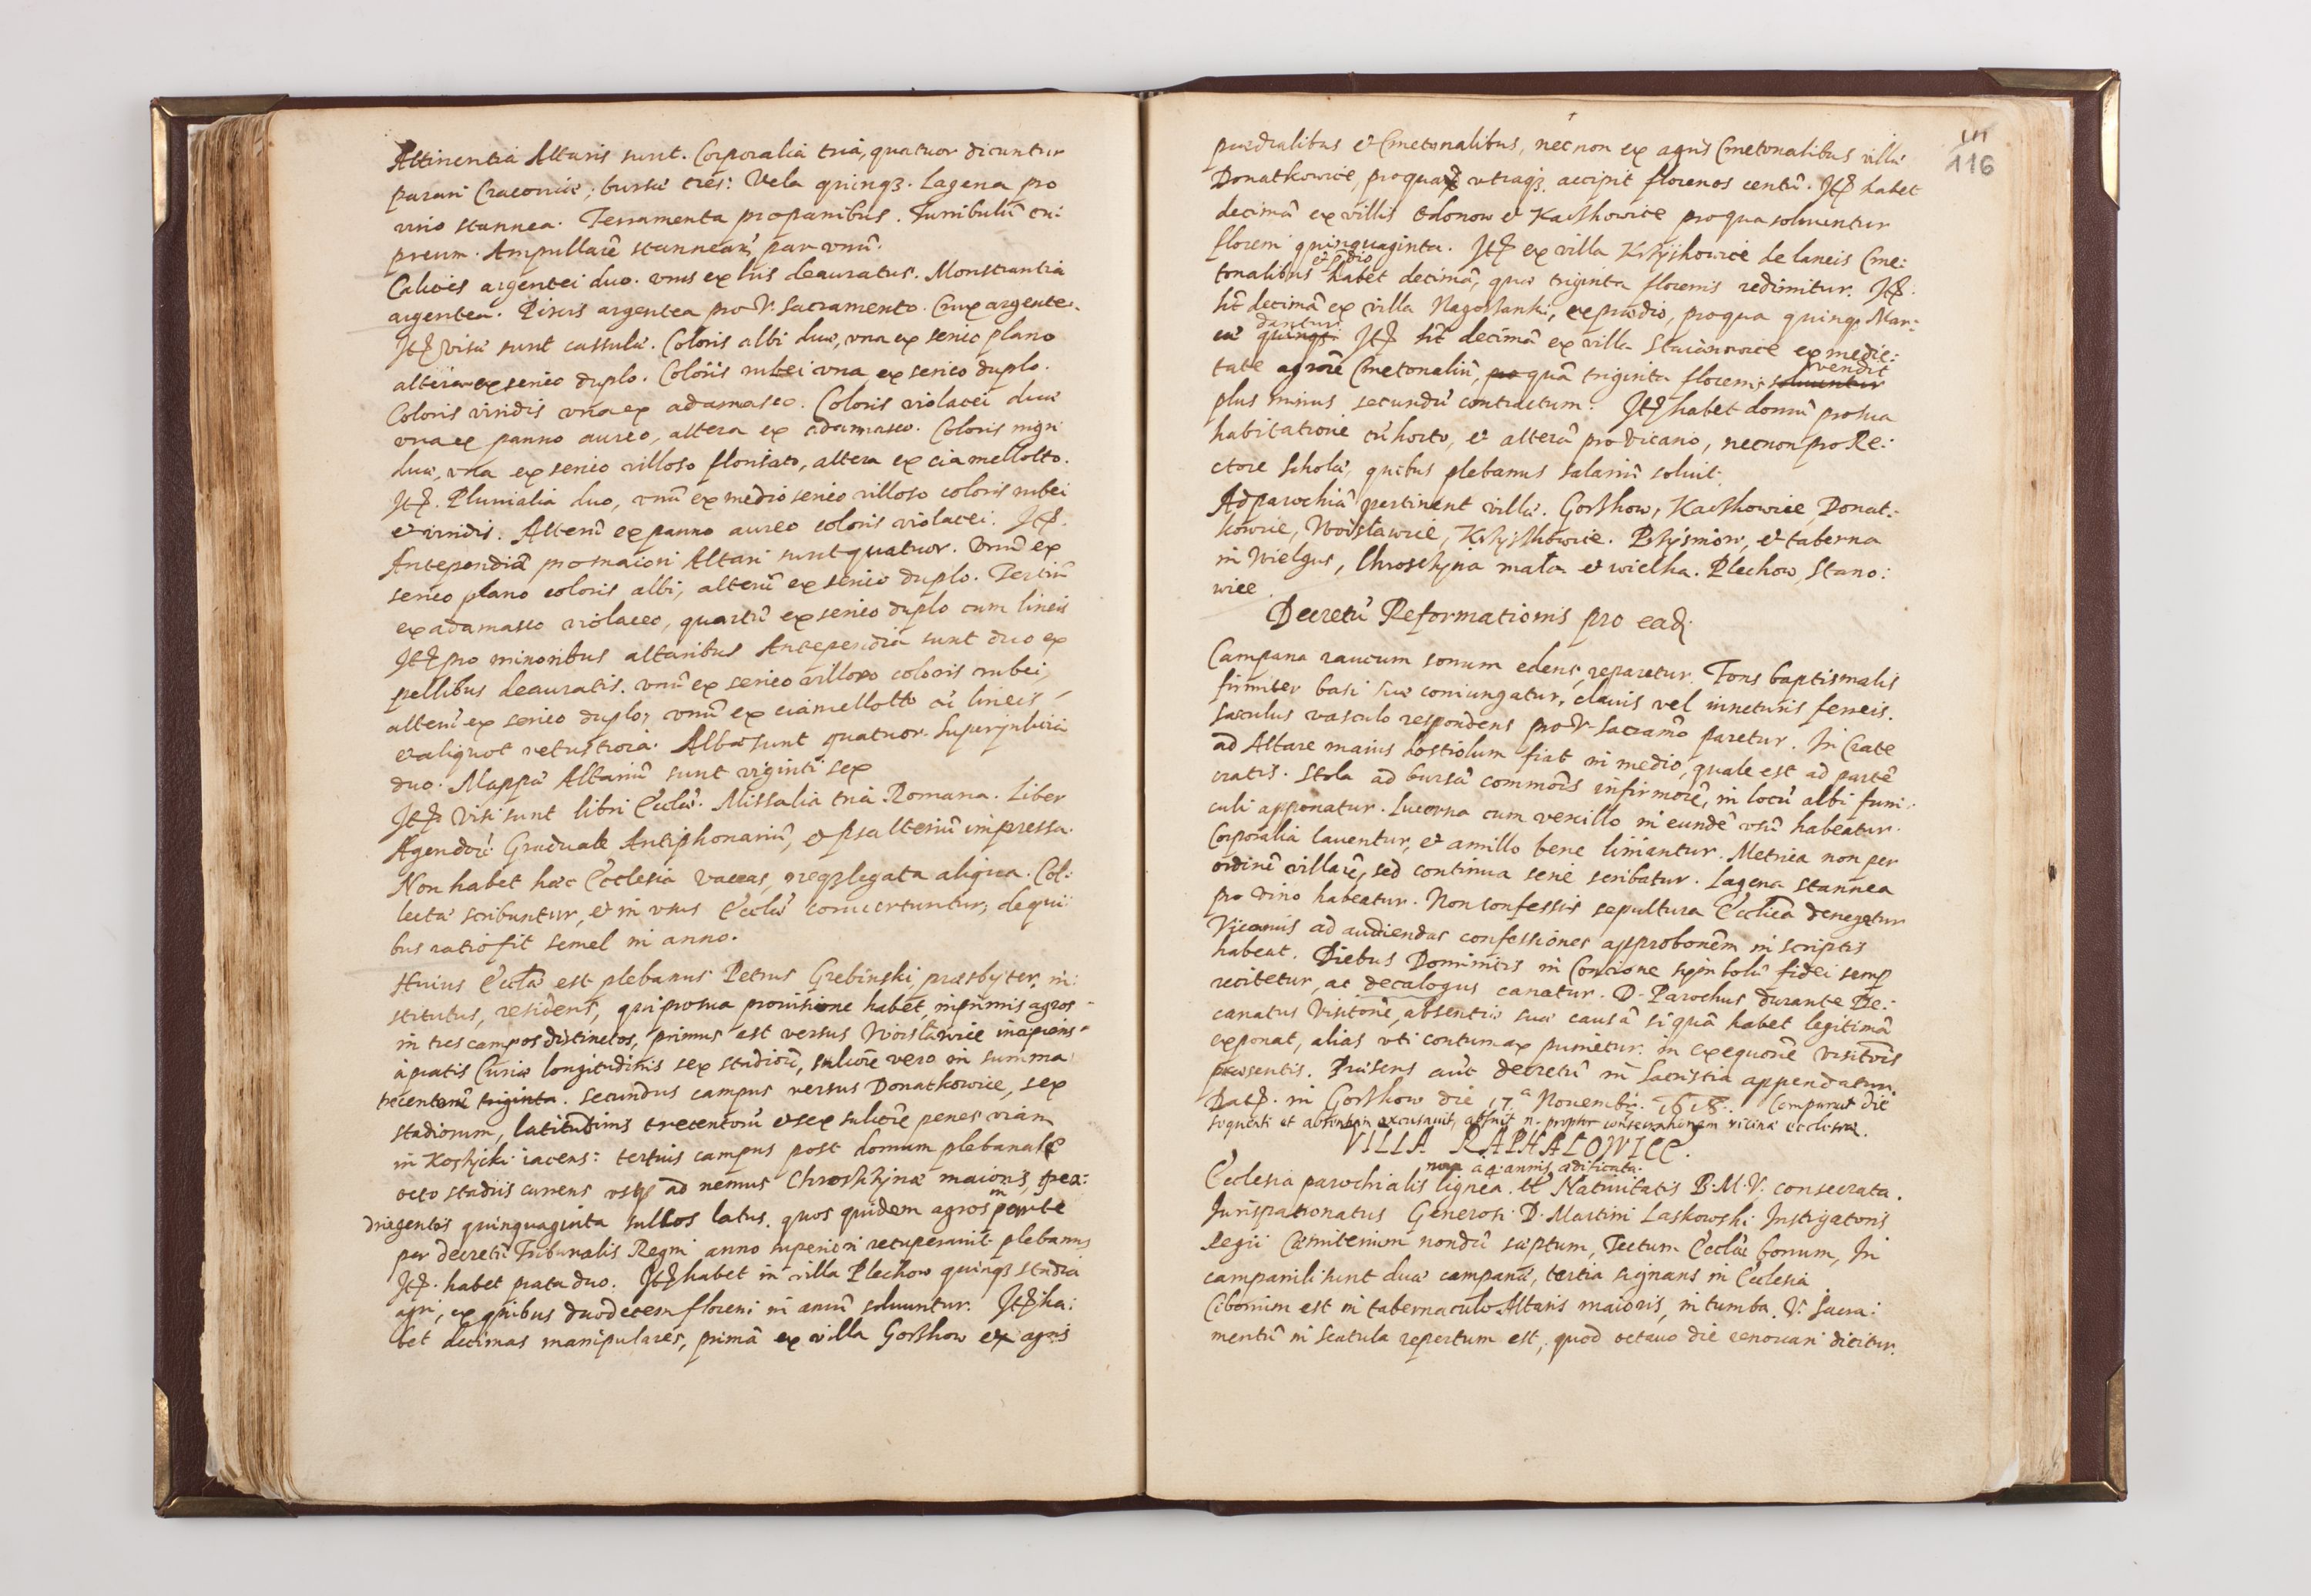 Attinentia Altaris sunt. Corporalia tria, quatuor dicuntur
parari Cracoviæ, bursæ tres: Vela quinqꝫ. Lagena pro
vino stannea. Ferramenta pro panibus. Turribulũ cu:
preum. Ampullarũ stannearũ par vnũ.
Calices argentei duo. vnus ex his deauratus. Monstrantia
argentea. Pixis argentea pro V. Sacramento. Crux argentea.
Itẽ visæ sunt cassulæ. Coloris albi duæ, vna ex serico plano
altera ex serico duplo. Coloris rubei vna ex serico duplo.
Coloris viridis vna ex adamasco. Coloris violacei duæ
vna ex panno aureo, altera ex adamasco. Coloris nigri
duæ, vna ex serico villoso florisato, altera ex ciamellotto.
Itẽ. Pluvialia duo, vnũ ex medio serico villoso coloris rubei
et viridis. Alterũ ex panno aureo coloris violacei. Itẽ.
Antependia pro maiori Altari sunt quatuor. Vnũ ex
serico plano coloris albi, alterũ ex serico duplo. Tertiũ
ex adamasco violaceo, quartũ ex serico duplo cum lineis
Itẽ pro minoribus altaribus Antependia sunt duo ex
pellibus deauratis. vnũ ex serico villoso coloris rubei,
alterũ ex serico duplo, vnũ ex ciamellotto cũ lineis
et aliquot vetustiora. Albæ sunt quatuor. Superpellicia
duo. Mappæ Altariũ sunt viginti sex
Itẽ visi sunt libri Ecclæ. Missalia tria Romana. Liber
Agendorũ. Graduale Antiphonariũ, et Psalteriũ impressa.
Non habet hæc Ecclesia vaccas, neqꝫ legata aliqua. Col:
lectæ scribuntur, et in vsus Ecclæ convertuntur, de qui
bus ratio fit semel in anno.
Huius Ecclæ est plebanus Petrus Grebinski, præsbyter, in:
stitutus, residens, qui pro sua provisione habet, inprimis agros
in tres campos distinctos, primus est versus Woislawice incipiens
à pratis Curiæ longitudinis sex stadiorũ, sulcorũ vero in summa
trecentorũ triginta. Secundus campus versus Donatkowice, sex
stadiorum, latitudinis trecentorũ et sex sulcorũ penes viam
in Koszycki iacens: tertius campus post domum plebanalẽ
octo stadiis currens vsqꝫ ad nemus Chroszczynæ maioris,
ducentis quinquaginta sulcos latus. quos quidem agros
per decretũ Tribunalis Regni anno superiori recuperauit plebanus
Itẽ. habet prata duo. Itẽ habet in villa Plechow quinqꝫ stadia
agri, ex quibus duodecem floreni in annũ soluuntur. Itẽ ha:
bet decimas manipulares, primã ex villa Gorszkow ex agris
116
prædialibus et Cmetonalibus, nec non ex agris Cmetonalibus villæ
Donatkowice, pro qua vtraqꝫ accipit florenos centũ. Itẽ habet
decimã ex villis Odonow et Kaczkowice pro qua soluuntur
floreni quinquaginta. Itẽ ex villa Krzyszkowice de laneis Cme:
et prædio
tonalibus habet decimã, quæ triginta florenis redimitur. Itẽ.
ht decimã ex villa Nagorzanki, ex prædio, pro qua quinqꝫ Mar:
dantur
cæ quinqꝫ. Itẽ ht decimã ex villa Stanowice ex medie:
vendit
tate agrorũ Cmetonaliũ, quã triginta florenis soluuntur
plus minus secundũ contractum. Itẽ habet domũ pro sua
habitatione cũ horto, et alterã pro Vicario, nec non pro Re:
ctore Scholæ, quibus plebanus salariũ soluit.
Ad parochiã pertinent villæ. Gorszkow, Kaczkowice, Donat:
kowice, Woislawice, Krzyszkowice. Przysmiow, et taberna
in Wielgus, Chroschyna mala et wielka. Plechow, Stano:
wice.
Decretũ Reformationis pro eadẽ
Campana raucum sonum edens, reparetur. Fons baptismalis
firmiter basi suæ coniungatur, clauis vel iuncturis ferreis.
Sacculus vasculo respondens pro V. Sacramẽo paretur. In Crate
ad Altare maius hostiolum fiat in medio, quale est ad partẽ
cratis. Stola ad bursã infirmorũ, in locũ albi funi:
culi apponatur. Lucerna cum vexillo in eundẽ vsũ habeatur.
Corporalia lauentur, et amillo bene liniantur. Metrica non per
ordinẽ villarũ, sed continua serie scribatur. Lagena stannea
pro vino habeatur. Non confessis sepultura Ecclica denegetur
Vicarius ad audiendas confessiones approbonẽm in scriptis
habeat. Diebus Dominicis in Concione symbolũ fidei semp
recitetur, ac decalogus canatur. D. Parochus durante De:
canatus Visitonẽ, absentiæ suæ causã si quã habet legitimã
exponat, alias vti contumax punietur. in exequonẽ visitonis
præsentis. Præsens aũt decretũ in Sacristia appendatur.
Datẽ. in Gorszkow die 17.ª Novembris. 1618. Comparuit die
sequenti et absentiam excusauit, abfuit n. propter conseruationem vicinæ ecclesiæ.
VILLA RAPHALOWICE.
noua a 4. annis ædificata.
Ecclesia parochialis lignea. et Natiuitatis B. M. V. consecrata.
Iurispatronatus Generosi D. Martini Laskowski Instigatoris
Regii Cæmiterium nondũ sæptum, Tectum Ecclæ bonum, In
campanili sunt duæ campanæ, tertia signans in Ecclesia
Ciborium est in tabernaculo Altaris maioris, in tumba. V. Sacra:
mentũ in scatula repertum est, quod octauo die renouari dicitur.